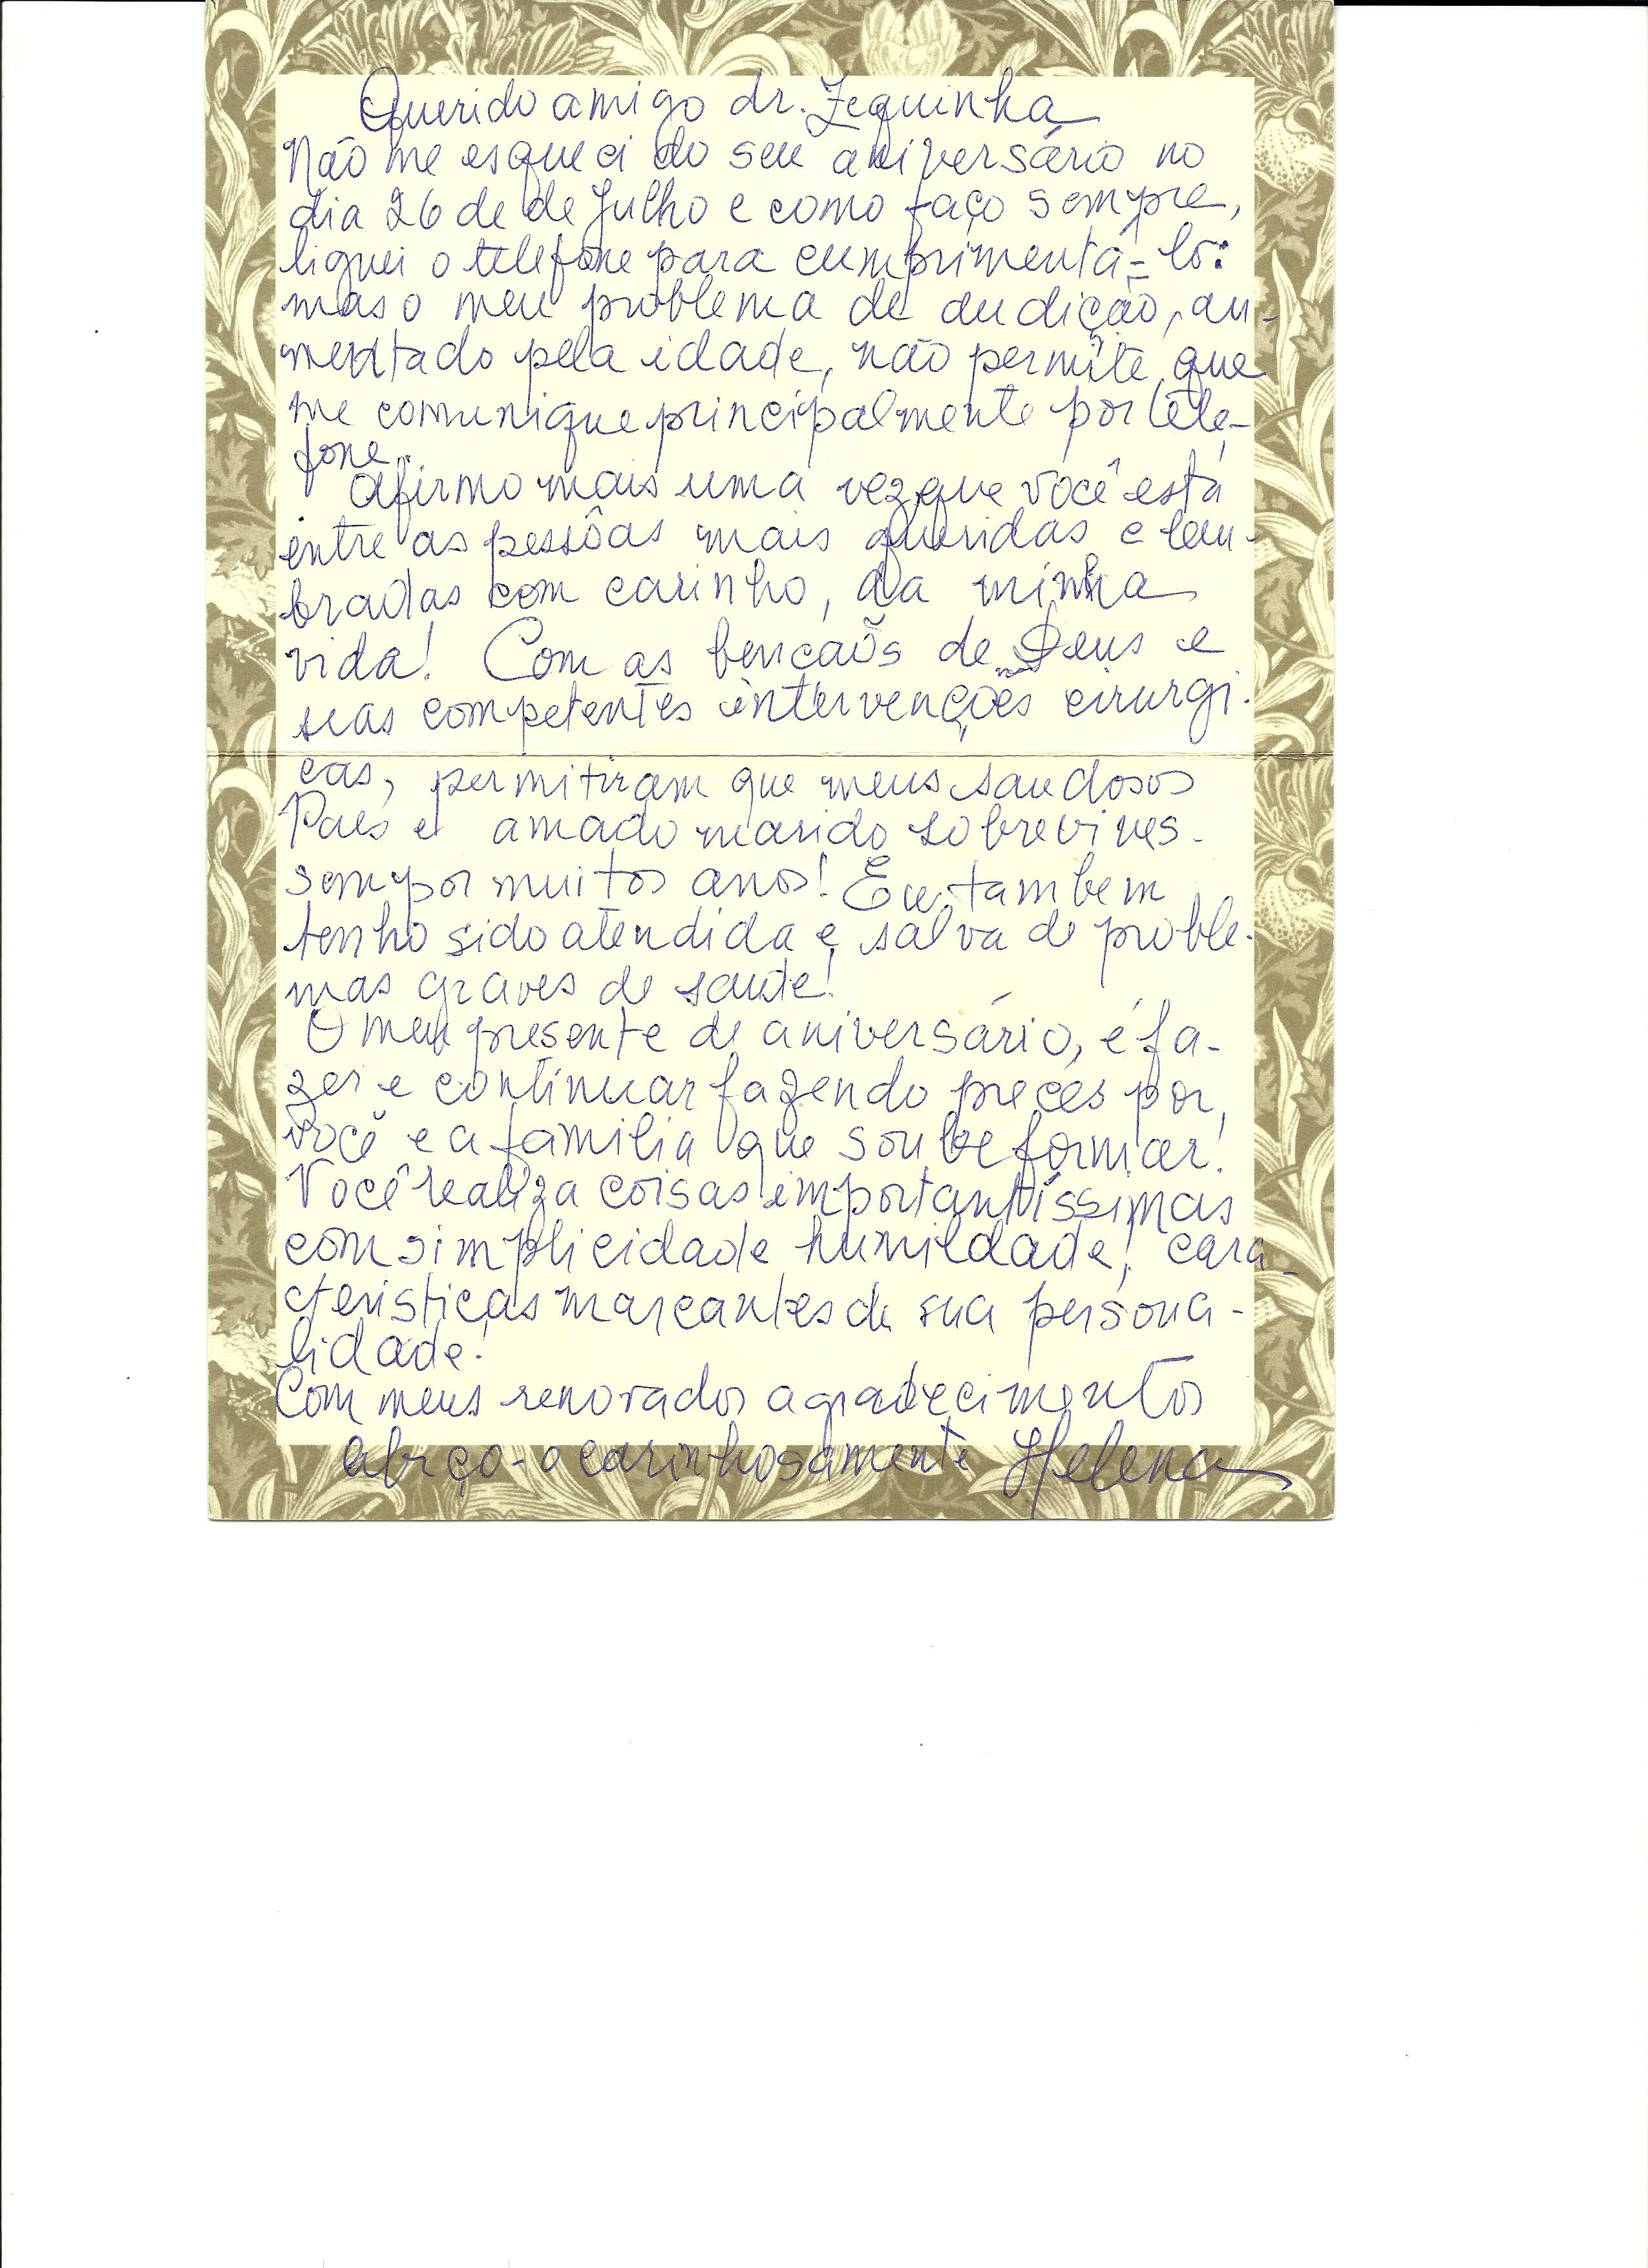 Querido amigo dr. Zequinha
Não me esqueci do seu aniversário no
dia 26 de de Julho e como faço sempre,
liguei o telefone para cumprimentá=lo:
mas o meu problema de audição, au-
mentado pela idade, não permite que
me comunique principalmente por tele-
fone.
Afirmo mais uma vez que você está
entre as pessôas mais queridas e lem-
bradas com carinho, da minha
vida! Com as bencaõs de Deus e
suas competentes intervenções cirurgi-
cas, permitiram que meus saudosos
Paes e amado marido sobrevives-
sem por muitos anos! Eu tambem
tenho sido atendida e salva de proble-
mas graves de saude!
O meu presente de aniversário, é fa-
zer e continuar fazendo preces por
você e a familia que soube formar!
Você realiza coisas importantíssimas
com simplicidade humildade, cara-
cteristicas marcantes de sua persona-
lidade!
Com meus renovados agradecimentos
abrço-o carinhosamente Helena